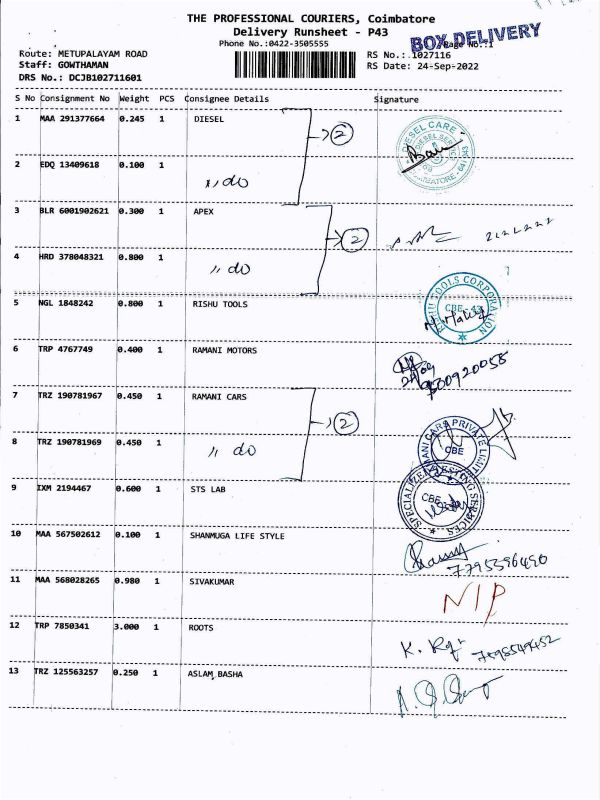 THE PROFESSIONAL COURIERS, Coimbatore
Delivery Runsheet - P43
Phone No.:0422-3505555
BOX DELIVERY
Page No.:1
Route: METUPALAYAM ROAD
RS No.: 1027116
Staff: GOWTHAMAN
RS Date: 24-Sep-2022
DRS No.: DCJB102711601
S No Consignment No Weight PCS Consignee Details Signature
1 MAA 291377664 0.245 1 DIESEL
2
DIESEL CARE
2 EDQ 13409618 0.100 1 ,, do
3 BLR 6001902621 0.300 1 APEX
2
4 HRD 378048321 0.800 1 ,, do
5 NGL 1848242 0.800 1 RISHU TOOLS
RISHU TOOLS CORPORATION
CBE-43
6 TRP 4767749 0.400 1 RAMANI MOTORS
7 TRZ 190781967 0.450 1 RAMANI CARS
2
RAMANI CARS PRIVATE LIMITED
CBE
8 TRZ 190781969 0.450 1 ,, do
9 IXM 2194467 0.600 1 STS LAB
SPECIALIZED TESTING SERVICES
CBE
10 MAA 567502612 0.100 1 SHANMUGA LIFE STYLE
7795396490
11 MAA 568028265 0.980 1 SIVAKUMAR
N/P
12 TRP 7850341 3.000 1 ROOTS
13 TRZ 125563257 0.250 1 ASLAM BASHA